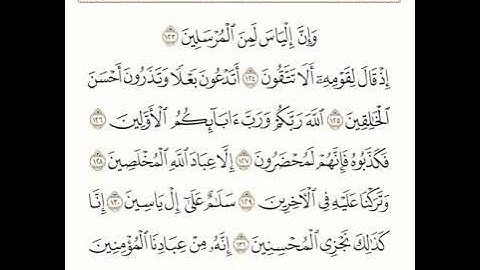 وَإِنَّ إِلْيَاسَ لَمِنَ الْمُرْسَلِينَ ١٢٣
إِذْ قَالَ لِقَوْمِهِ أَلَا تَتَّقُونَ ١٢٤ أَتَدْعُونَ بَعْلًا وَتَذَرُونَ أَحْسَنَ
الْخَٰلِقِينَ ١٢٥ اللَّهَ رَبَّكُمْ وَرَبَّ ءَابَآئِكُمُ الْأَوَّلِينَ ١٢٦
فَكَذَّبُوهُ فَإِنَّهُمْ لَمُحْضَرُونَ ١٢٧ إِلَّا عِبَادَ اللَّهِ الْمُخْلَصِينَ ١٢٨
وَتَرَكْنَا عَلَيْهِ فِي الْآخِرِينَ ١٢٩ سَلَٰمٌ عَلَىٰٓ إِلْ يَاسِينَ ١٣٠ إِنَّا
كَذَٰلِكَ نَجْزِي الْمُحْسِنِينَ ١٣١ إِنَّهُۥ مِنْ عِبَادِنَا الْمُؤْمِنِينَ